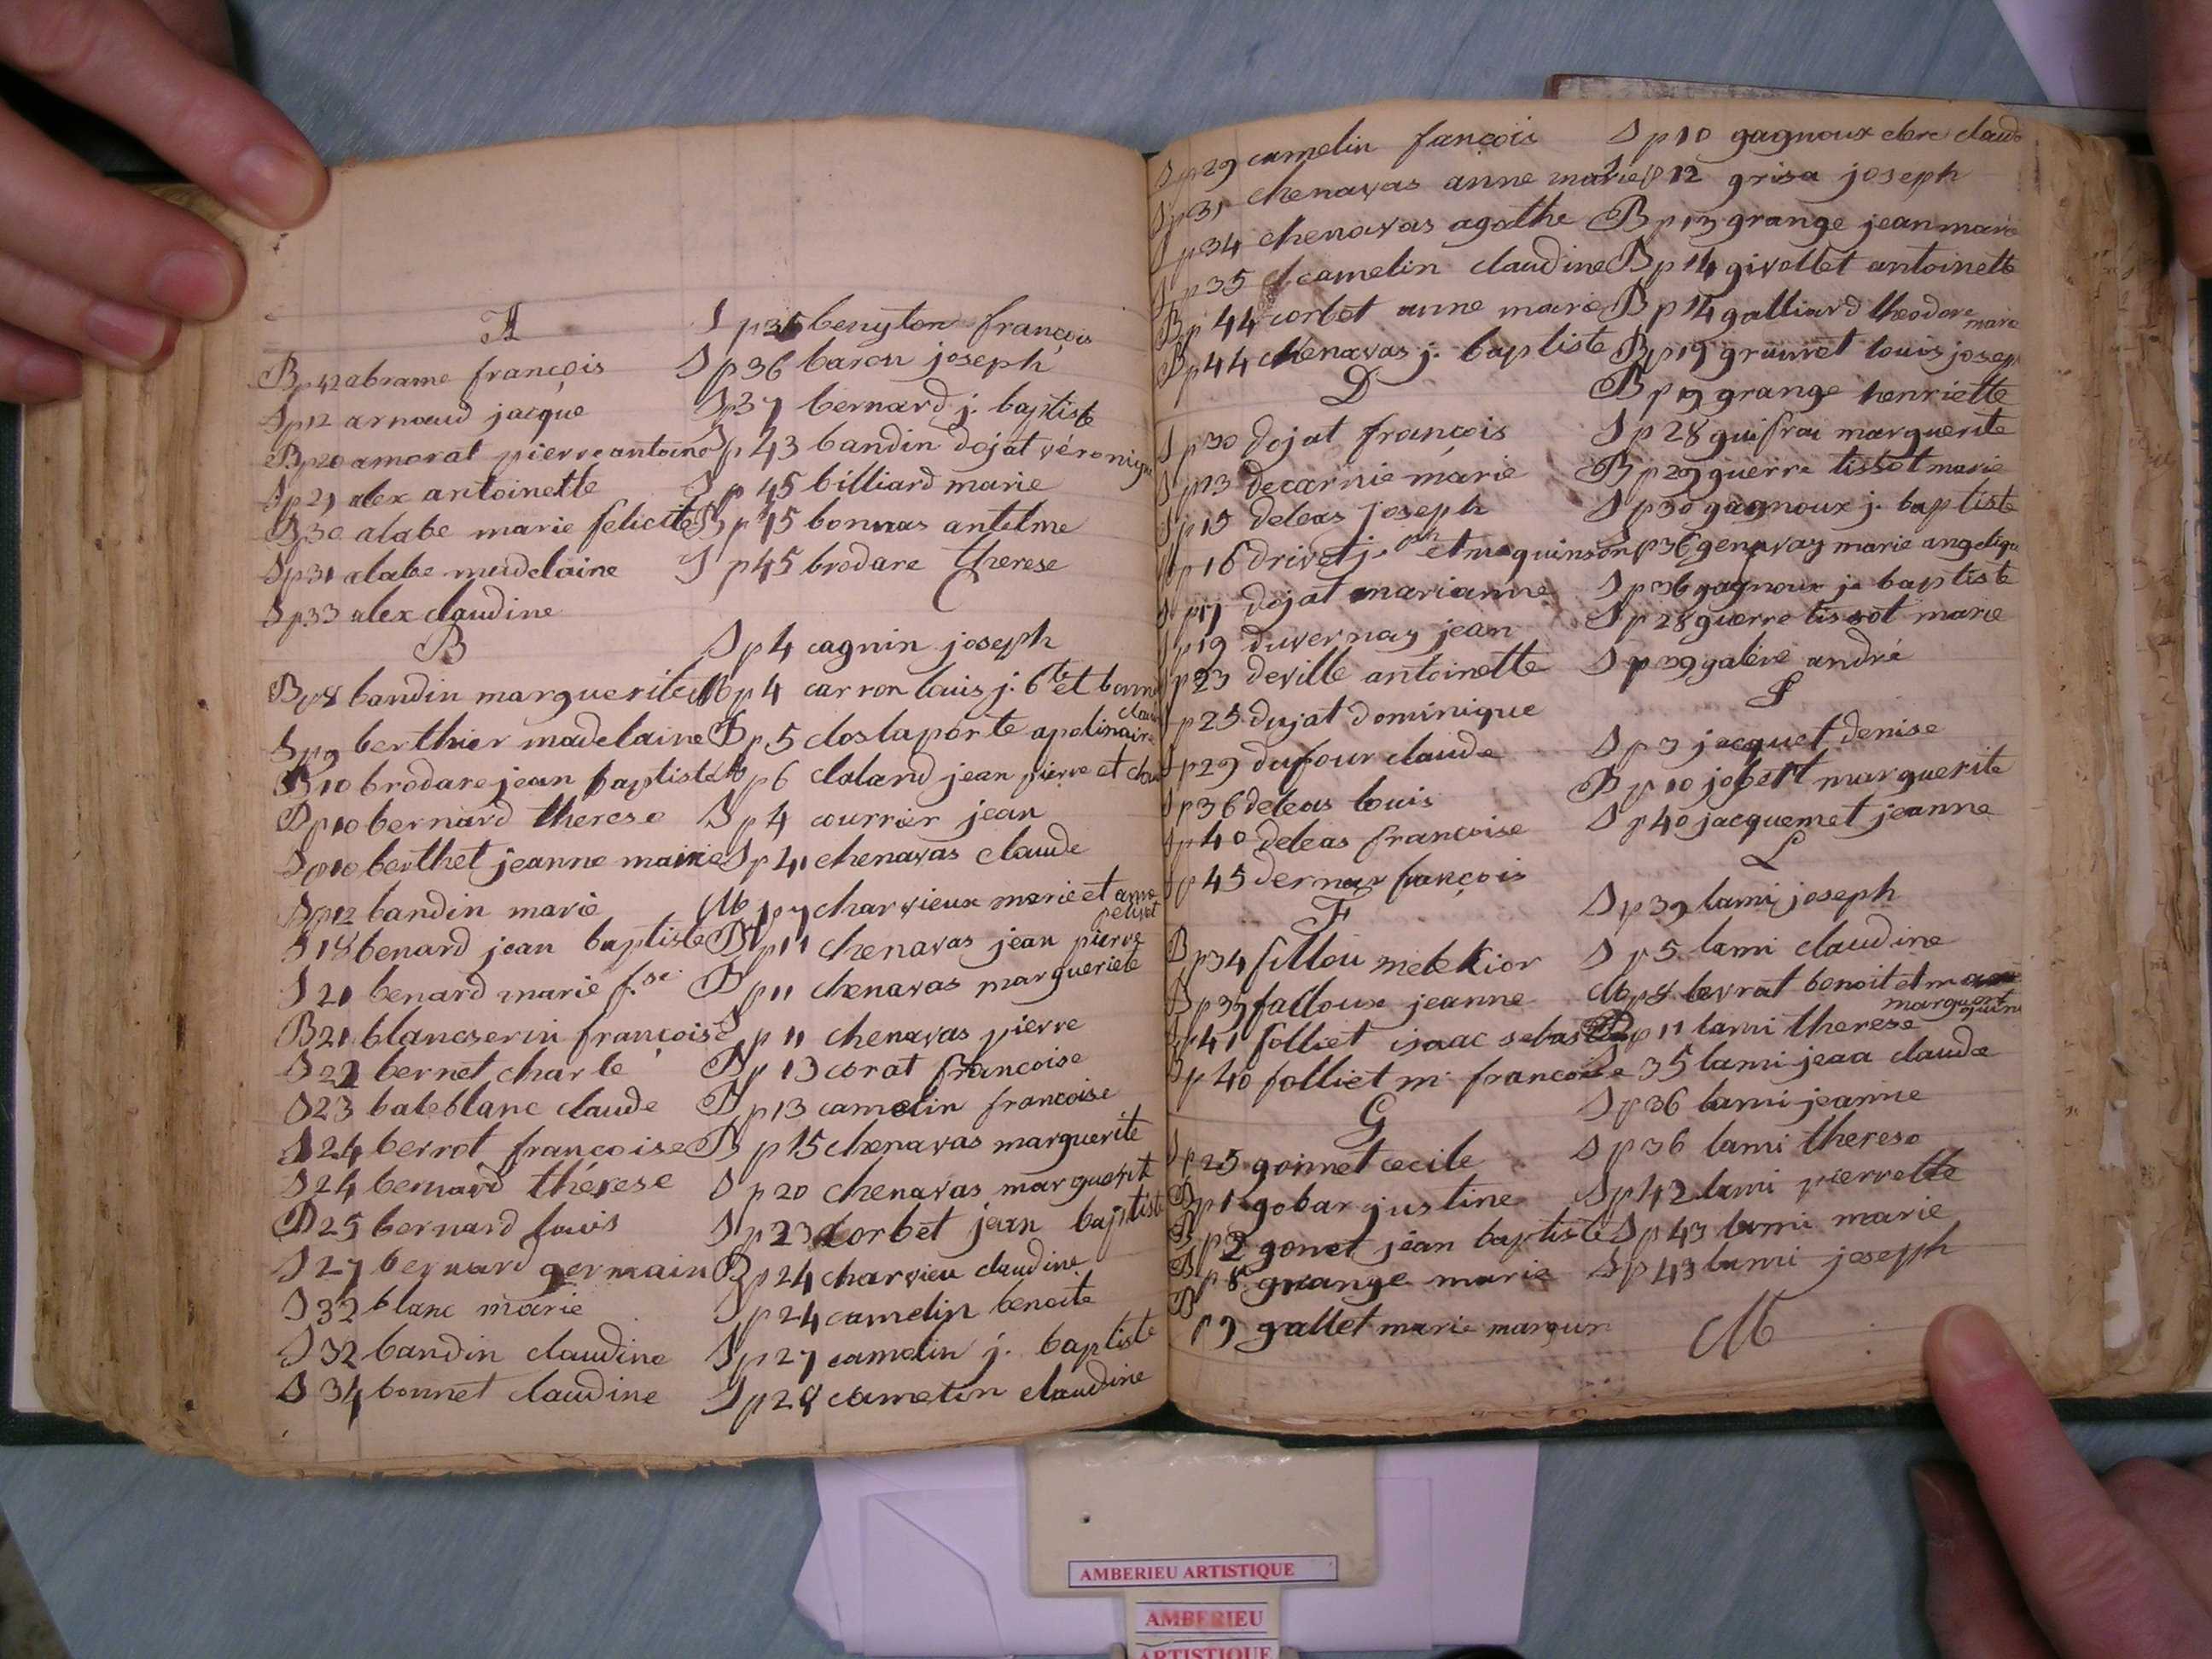 A
Bp42 abrame françois
Sp12 arnaud jacque
Bp20 amorat pierre antoine
Sp21 alex antoinette
Sp30 alabe marie felicite
Sp31 alabe madelaine
Sp33 alex claudine
B
Bp8 bandin marguerite
Sp9 berthier madelaine
B10 brodare jean baptiste
Bp10 bernard therese
Sp10 berthet jeanne marie
Sp12 bandin marie
S18 benard jean baptiste
S21 benard marie f.se
B21 blancserin françoise
S22 bernet charle
S23 bateblanc claude
S24 berrot francoise
S24 bernard thérese
B25 bernard louis
S27 bernard germain
S32 blanc marie
S32 bandin claudine
S34 bonnet claudine
Sp35 benyton françois
Sp36 baron joseph
Sp37 bernard j. baptiste
Sp43 bandin dojat véronique
Sp45 billiard marie
Bp45 bonnas antelme
Sp45 brodare therese
C
Sp4 cagnin joseph
Mp4 carron louis j. bte et bonne
claud
Bp5 closlaporte apolinaire
Mp6 claland jean pierre et clau
Sp4 courrier jean
Sp41 chenavas claude
Mp7 charvieux marie et anne
pelisot
Bp11 chenavas jean pierre
Bp11 chenavas marguerite
Sp11 chenavas pierre
Bp13 corat francoise
Bp13 camelin francoise
Bp15 chenavas marguerite
Sp20 chenavas marguerite
Sp23 corbet jean baptiste
Bp24 charvieu claudine
Sp24 camelin benoite
Sp27 camelin j. baptiste
Sp28 camelin claudine
Sp29 camelin françois
Sp31 chenavas anne marie
Sp34 chenavas agathe
Sp35 camelin claudine
Bp44 corbet anne marie
Bp44 chenavas j. baptiste
D
Sp30 dojat françois
Sp13 decarnie marie
Sp15 deleas joseph
Mp16 drivet j. oph et m. guinson
Sp17 dojat marianne
Sp19 duvernay jean
Sp23 deville antoinette
Sp25 dujat dominique
Sp29 dufour claude
Sp36 deleas louis
Sp40 deleas francoise
Sp45 françois
F
Bp34 fillou melekior
Bp39 falloux jeanne
Sp41 folliet isaac sebastien
Bp40 folliet m. francoise
G
Sp25 goinnet cecile
Bp1 gobar justine
Bp2 gonet jean baptiste
Bp8 grange marie
B
p9 gallet marie margur
Sp10 gagnoux claude
Sp12 grisa joseph
Bp13 grange jean marie
Bp14 givollet antoinette
Bp14 galliard theodore
marie
Bp19 grauvet louis joseph
Bp19 grange henriette
Sp28 guifrai marguerite
Bp29 guerre tissot marie
Sp30 gagnoux j. baptiste
Sp36 genavay marie angelique
Sp36 gagnoux j. baptiste
Sp28 guerre tissot marie
Sp39 galere andré
J
Sp3 jacquet denise
Bp10 jobert marguerite
Sp40 jacquemet jeanne
L
Sp39 lami joseph
Sp5 lami claudine
Mp8 levrat benoit et
marguerite
Bp11 lami therese
Sp35 lami jean claude
Sp36 lami jeanne
Sp36 lami therese
Sp42 lami pierrette
Sp43 lami marie
Sp43 lami joseph
M
AMBERIEU ARTISTIQUE
AMBERIEU
ARTISTIQUE